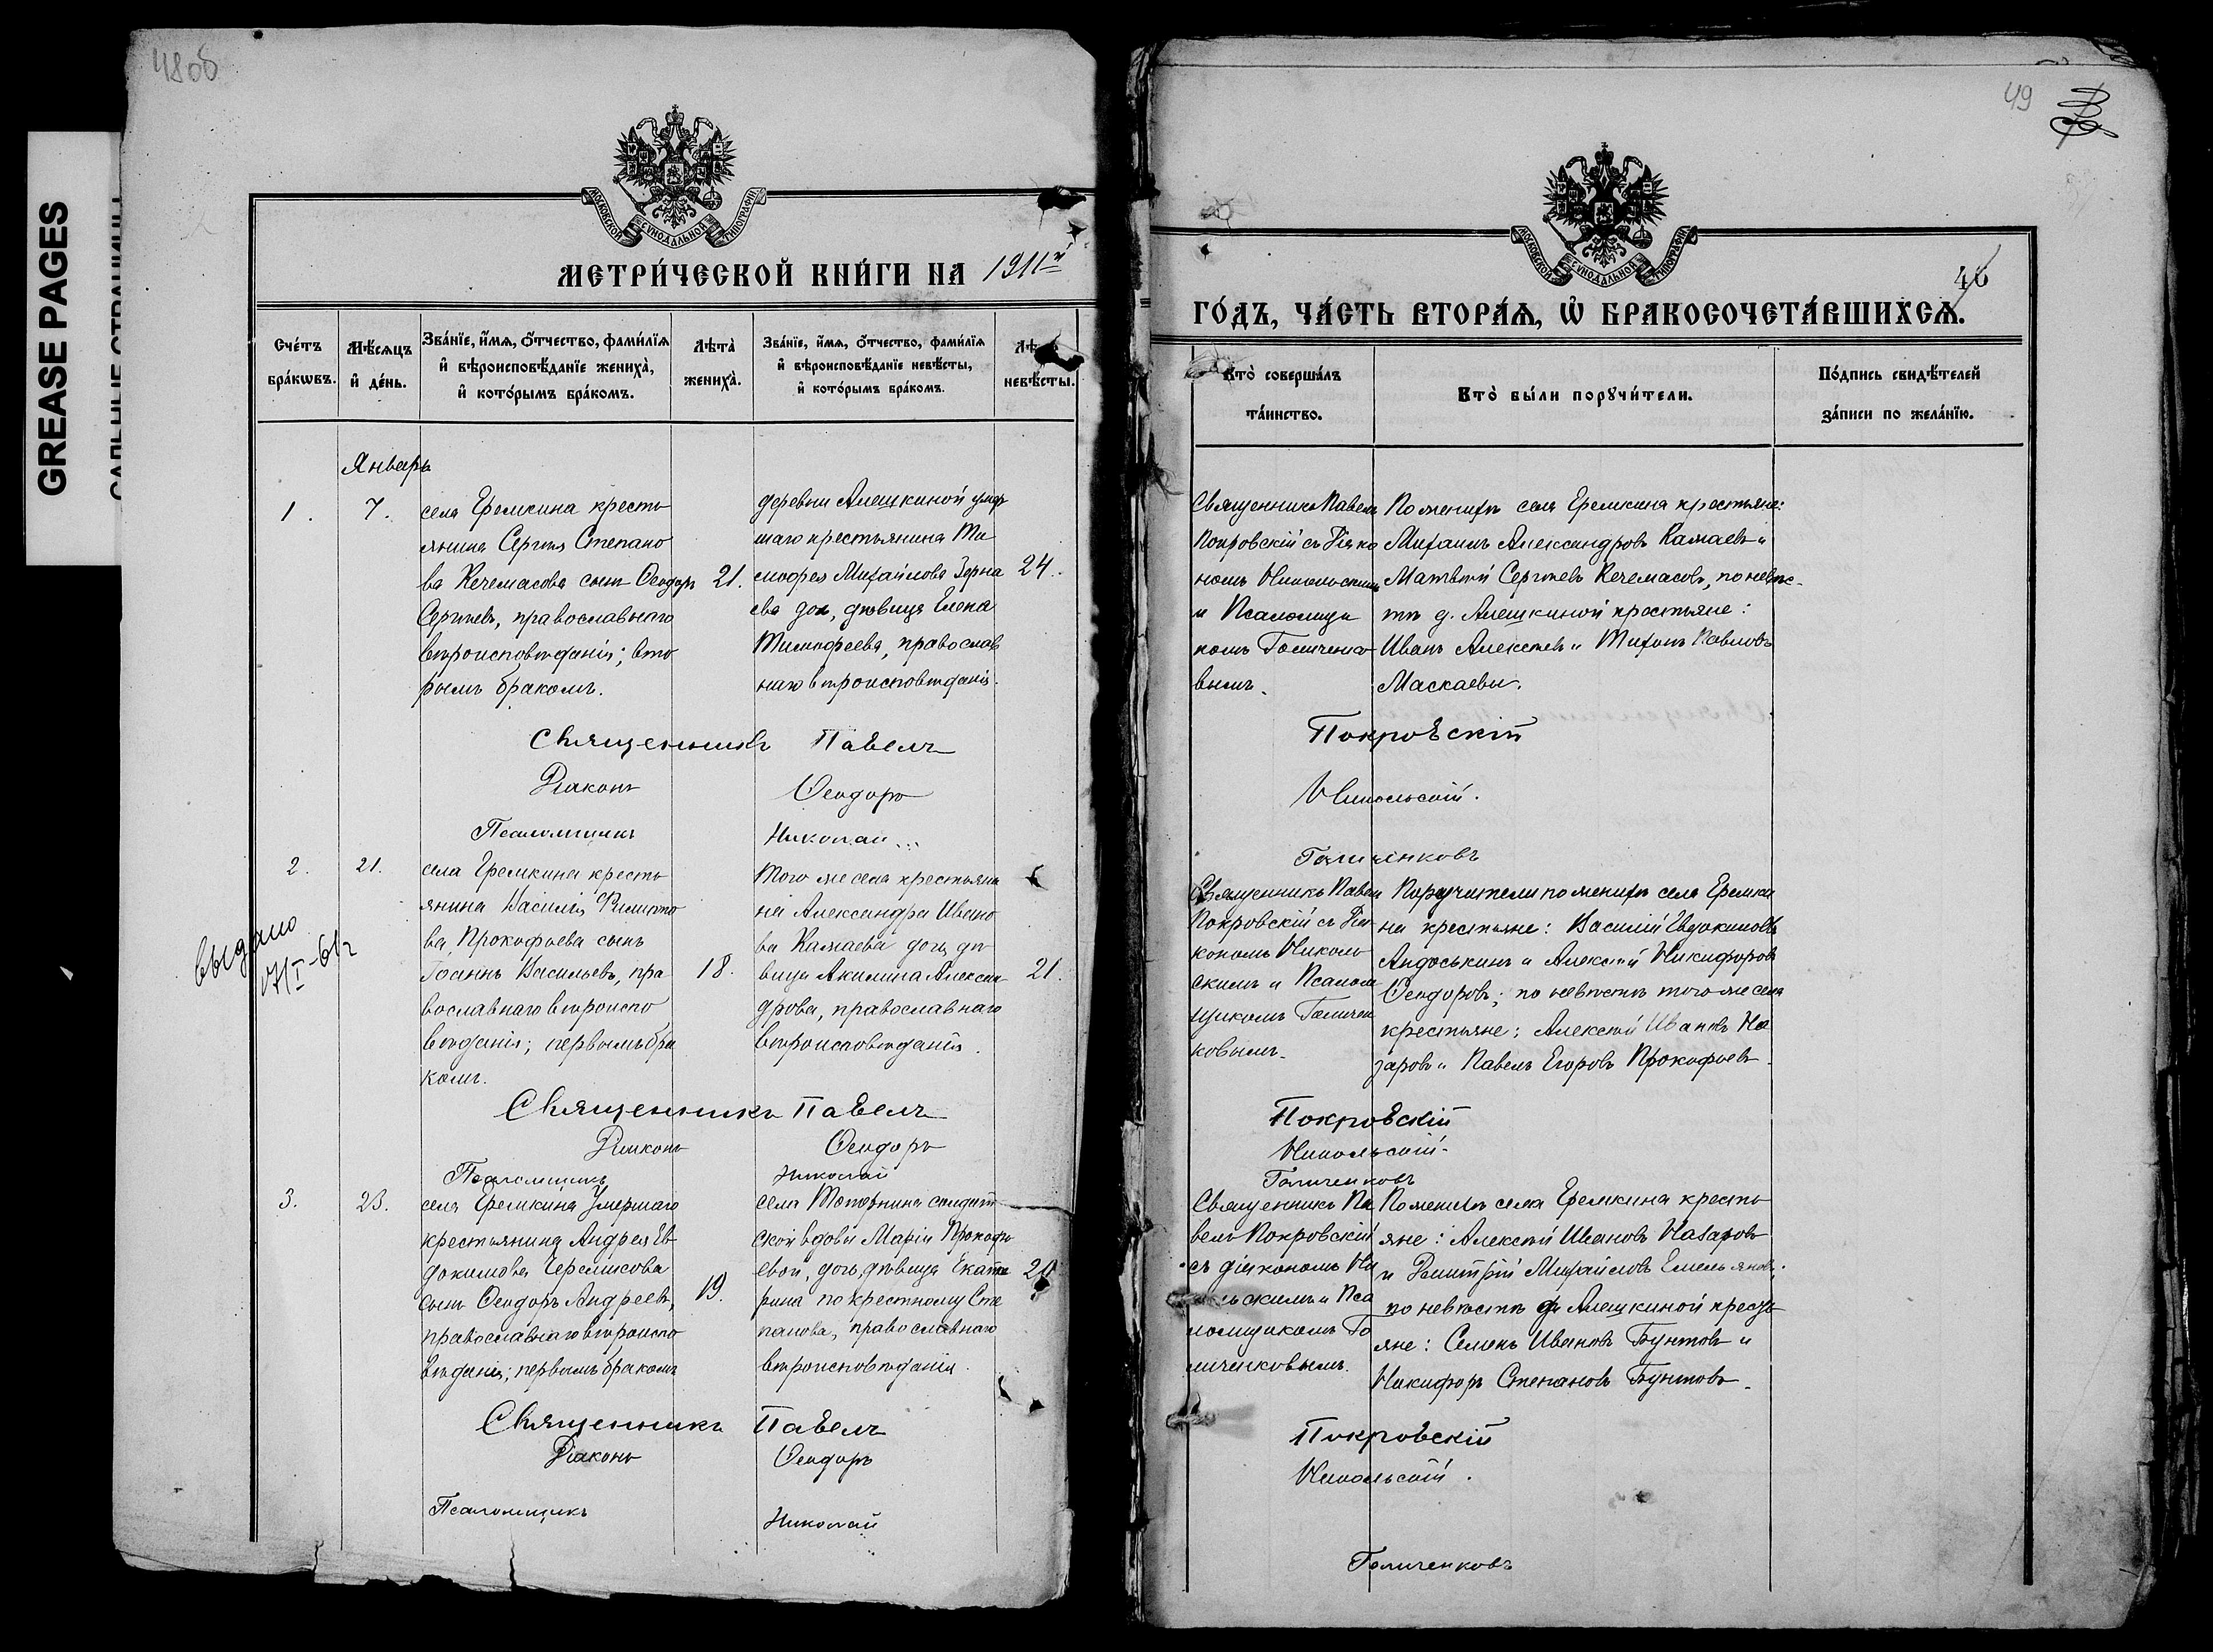 GREASE PAGES
48об
МОСКОВСКОЙ СѴНОДАЛЬНОЙ ТИПОГРАФІИ
МЕТРИ́ЧЕСКОЙ КНИ́ГИ НА 1911й
Сче́тъ бра́кωвъ.
Мѣ́сяцъ и҆ де́нь.
Зва́нїе, и҆́мѧ, ѻ҆́тчество, фами́лїѧ
и҆ вѣроисповѣ́данїе жениха̀,
и҆ кото́рымъ бра́комъ.
Лѣта̀ жениха̀.
Зва́нїе, и҆́мѧ, ѻ҆́тчество, фами́лїѧ
и҆ вѣроисповѣ́данїе невѣ́сты,
и҆ кото́рымъ бра́комъ.
невѣ́сты.
Январь
1. 7.
села Еремкина кресть
янина Сергѣя Степано
ва Кечемасова сынъ Ѳеодоръ
Сергѣевъ, православнаго
вѣроисповѣданія; вто
рымъ бракомъ.
21.
деревни Алешкиной умер
шаго крестьянина Ти
моѳея Михайлова Зерна
ева дочь, дѣвица Елена
Тимофеева, православ
наго вѣроисповѣданія.
24.
Священникъ Павелъ
Діаконъ Ѳеодоръ
Псаломщикъ Николай
2. 21.
села Еремкина кресть
янина Василія Филиппо
ва Прокофьева сынъ
Іоаннъ Васильевъ, пра
вославнаго вѣроиспо
вѣданія; первымъ бра
комъ.
18.
Того же села крестьяни
на Александра Ивано
ва Камаева дочь, дѣ
вица Акилина Алексан
дрова, православнаго
вѣроисповѣданія.
21.
выдано
Священникъ Павелъ
Діаконъ Ѳеодоръ
Псаломщикъ Николай
3. 23.
села Еремкина умершаго
крестьянина Андрея Ев
докимова Черемисова
сынъ Ѳеодоръ Андреевъ,
православнаго вѣроиспо
вѣданія; первымъ бракомъ
19.
села солдат
ской вдовы Маріи Прокофь
евой, дочь, дѣвица Екате
рина по крестному Сте
панова, православнаго
вѣроисповѣданія.
Священникъ Павелъ
Діаконъ Ѳеодоръ
Псаломщикъ Николай
49
МОСКОВСКОЙ СѴНОДАЛЬНОЙ ТИПОГРАФІИ
46
ГО́ДЪ, ЧА́СТЬ ВТОРА́Ѧ, Ѽ БРАКОСОЧЕТА́ВШИХСѦ.
Кто̀ соверша́лъ та́инство.
Кто̀ бы́ли порꙋчи́тели.
По́дпись свидѣ́телей за́писи по жела́нїю.
Священникъ Павелъ
Покровскій съ Діако
номъ Никольскимъ
и Псаломщи
комъ Голиченко
вымъ.
По женихѣ села Еремкина крестьяне:
Михаилъ Александровъ Камаевъ и
Матвѣй Сергѣевъ Кечемасовъ, по невѣс-
тѣ д. Алешкиной крестьяне:
Иванъ Алексѣевъ и Тихонъ Павловъ
Маскаевы.
Покровскій
Никольскій.
Голиченковъ
Священникъ Павелъ
Покровскій съ Діа
кономъ Николь
скимъ и Псалом
щикомъ Голичен
ковымъ.
Поручители по женихѣ села Еремки
на крестьяне: Василій Евдокимовъ
Андоськинъ и Алексѣй Никифоровъ
Ѳеодоровъ; по невѣстѣ того же села
крестьяне: Алексѣй Ивановъ На
заровъ и Павелъ Егоровъ Прокофьевъ.
Покровскій
Никольскій.
Голиченковъ
Священникъ Па
велъ Покровскій
съ діакономъ Ни
льскимъ и Пса
ломщикомъ Го
личенковымъ.
По женихѣ села Еремкина кресть
яне: Алексѣй Ивановъ Назаровъ
и Димитрій Михайловъ Емельяновъ;
по невѣстѣ д. Алешкиной кресть
яне: Семенъ Ивановъ Бунтовъ и
Никифоръ Степановъ Бунтовъ.
Покровскій
Никольскій.
Голиченковъ